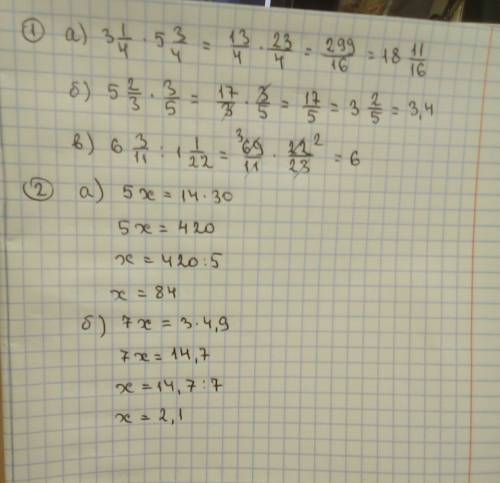 ① а) 3 1/4 · 5 3/4 = 13/4 · 23/4 = 299/16 = 18 11/16
б) 5 2/3 · 3/5 = 17/3 · 3/5 = 17/5 = 3 2/5 = 3,4
в) 6 3/11 : 1 1/22 = ³69/11 · 22²/23 = 6
② а) 5x = 14·30
5x = 420
x = 420:5
x = 84
б) 7x = 3·4,9
7x = 14,7
x = 14,7:7
x = 2,1